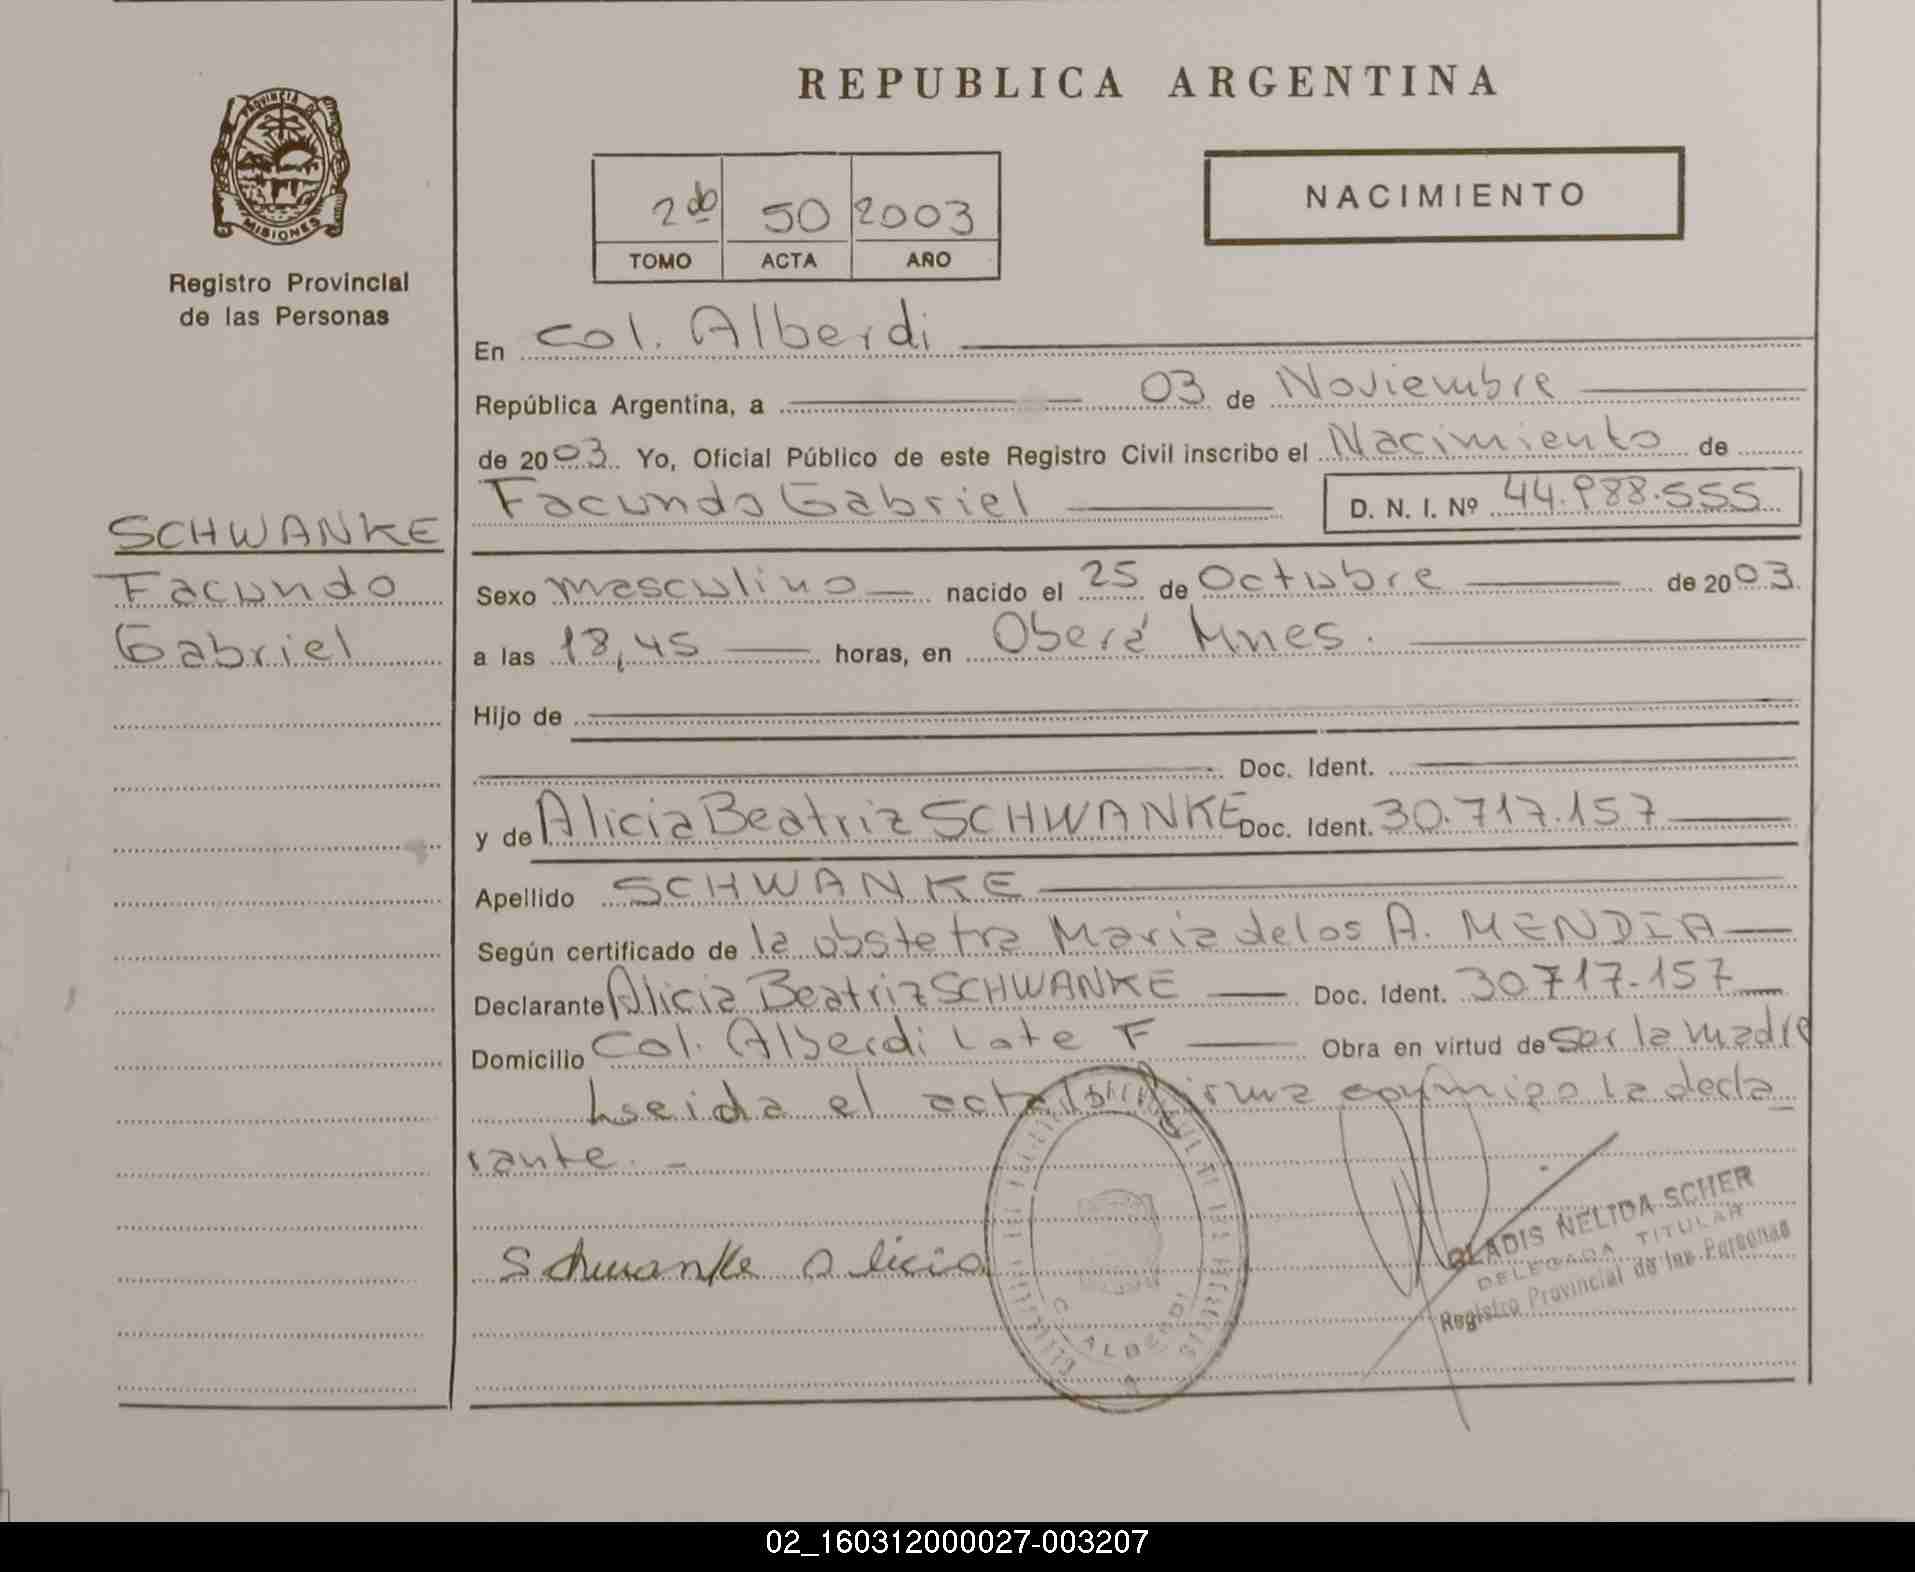 REPUBLICA ARGENTINA
PROVINCIA DE MISIONES
Registro Provincial
de las Personas
2do 50 2003
TOMO ACTA AÑO
NACIMIENTO
En Col. Alberdi
República Argentina, a 03 de Noviembre
de 2003. Yo, Oficial Público de este Registro Civil inscribo el Nacimiento de
Facundo Gabriel D. N. I. Nº 44.988.555
SCHWANKE
Facundo
Gabriel
Sexo masculino nacido el 25 de Octubre de 2003.
a las 18,45 horas, en Oberá Mnes.
Hijo de
Doc. Ident.
y de Alicia Beatriz SCHWANKE Doc. Ident. 30.717.157
Apellido SCHWANKE
Según certificado de la obstetra Maria de los A. MENDIA
Declarante Alicia Beatriz SCHWANKE Doc. Ident. 30717.157
Domicilio Col. Alberdi Lote F Obra en virtud de ser la madre
Leida el acta firma conmigo la decla
rante. -
Schwanke Alicia
C. ALBERDI
GLADIS NELIDA SCHER
DELEGADA TITULAR
Registro Provincial de las Personas
02_160312000027-003207